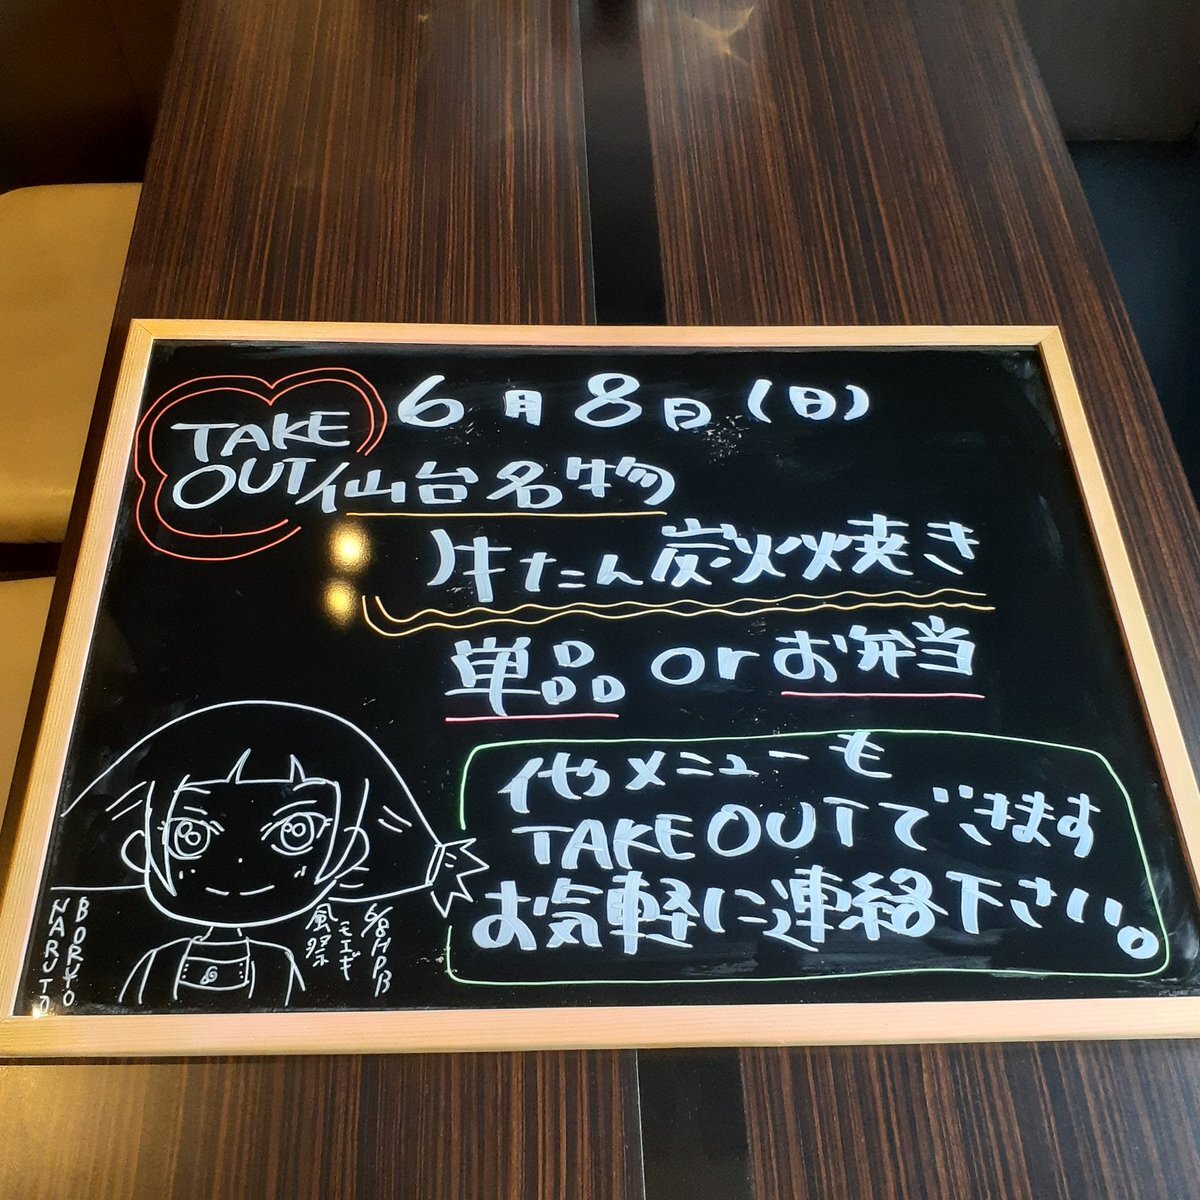 6月8日(日)
TAKE
OUT
仙台名物
牛たん炭火焼き
単品 or お弁当
他メニューも
TAKE OUTできます
お気軽に連絡下さい。
6/8 HPB
モエギ
風祭
BORUTO
NARUTO